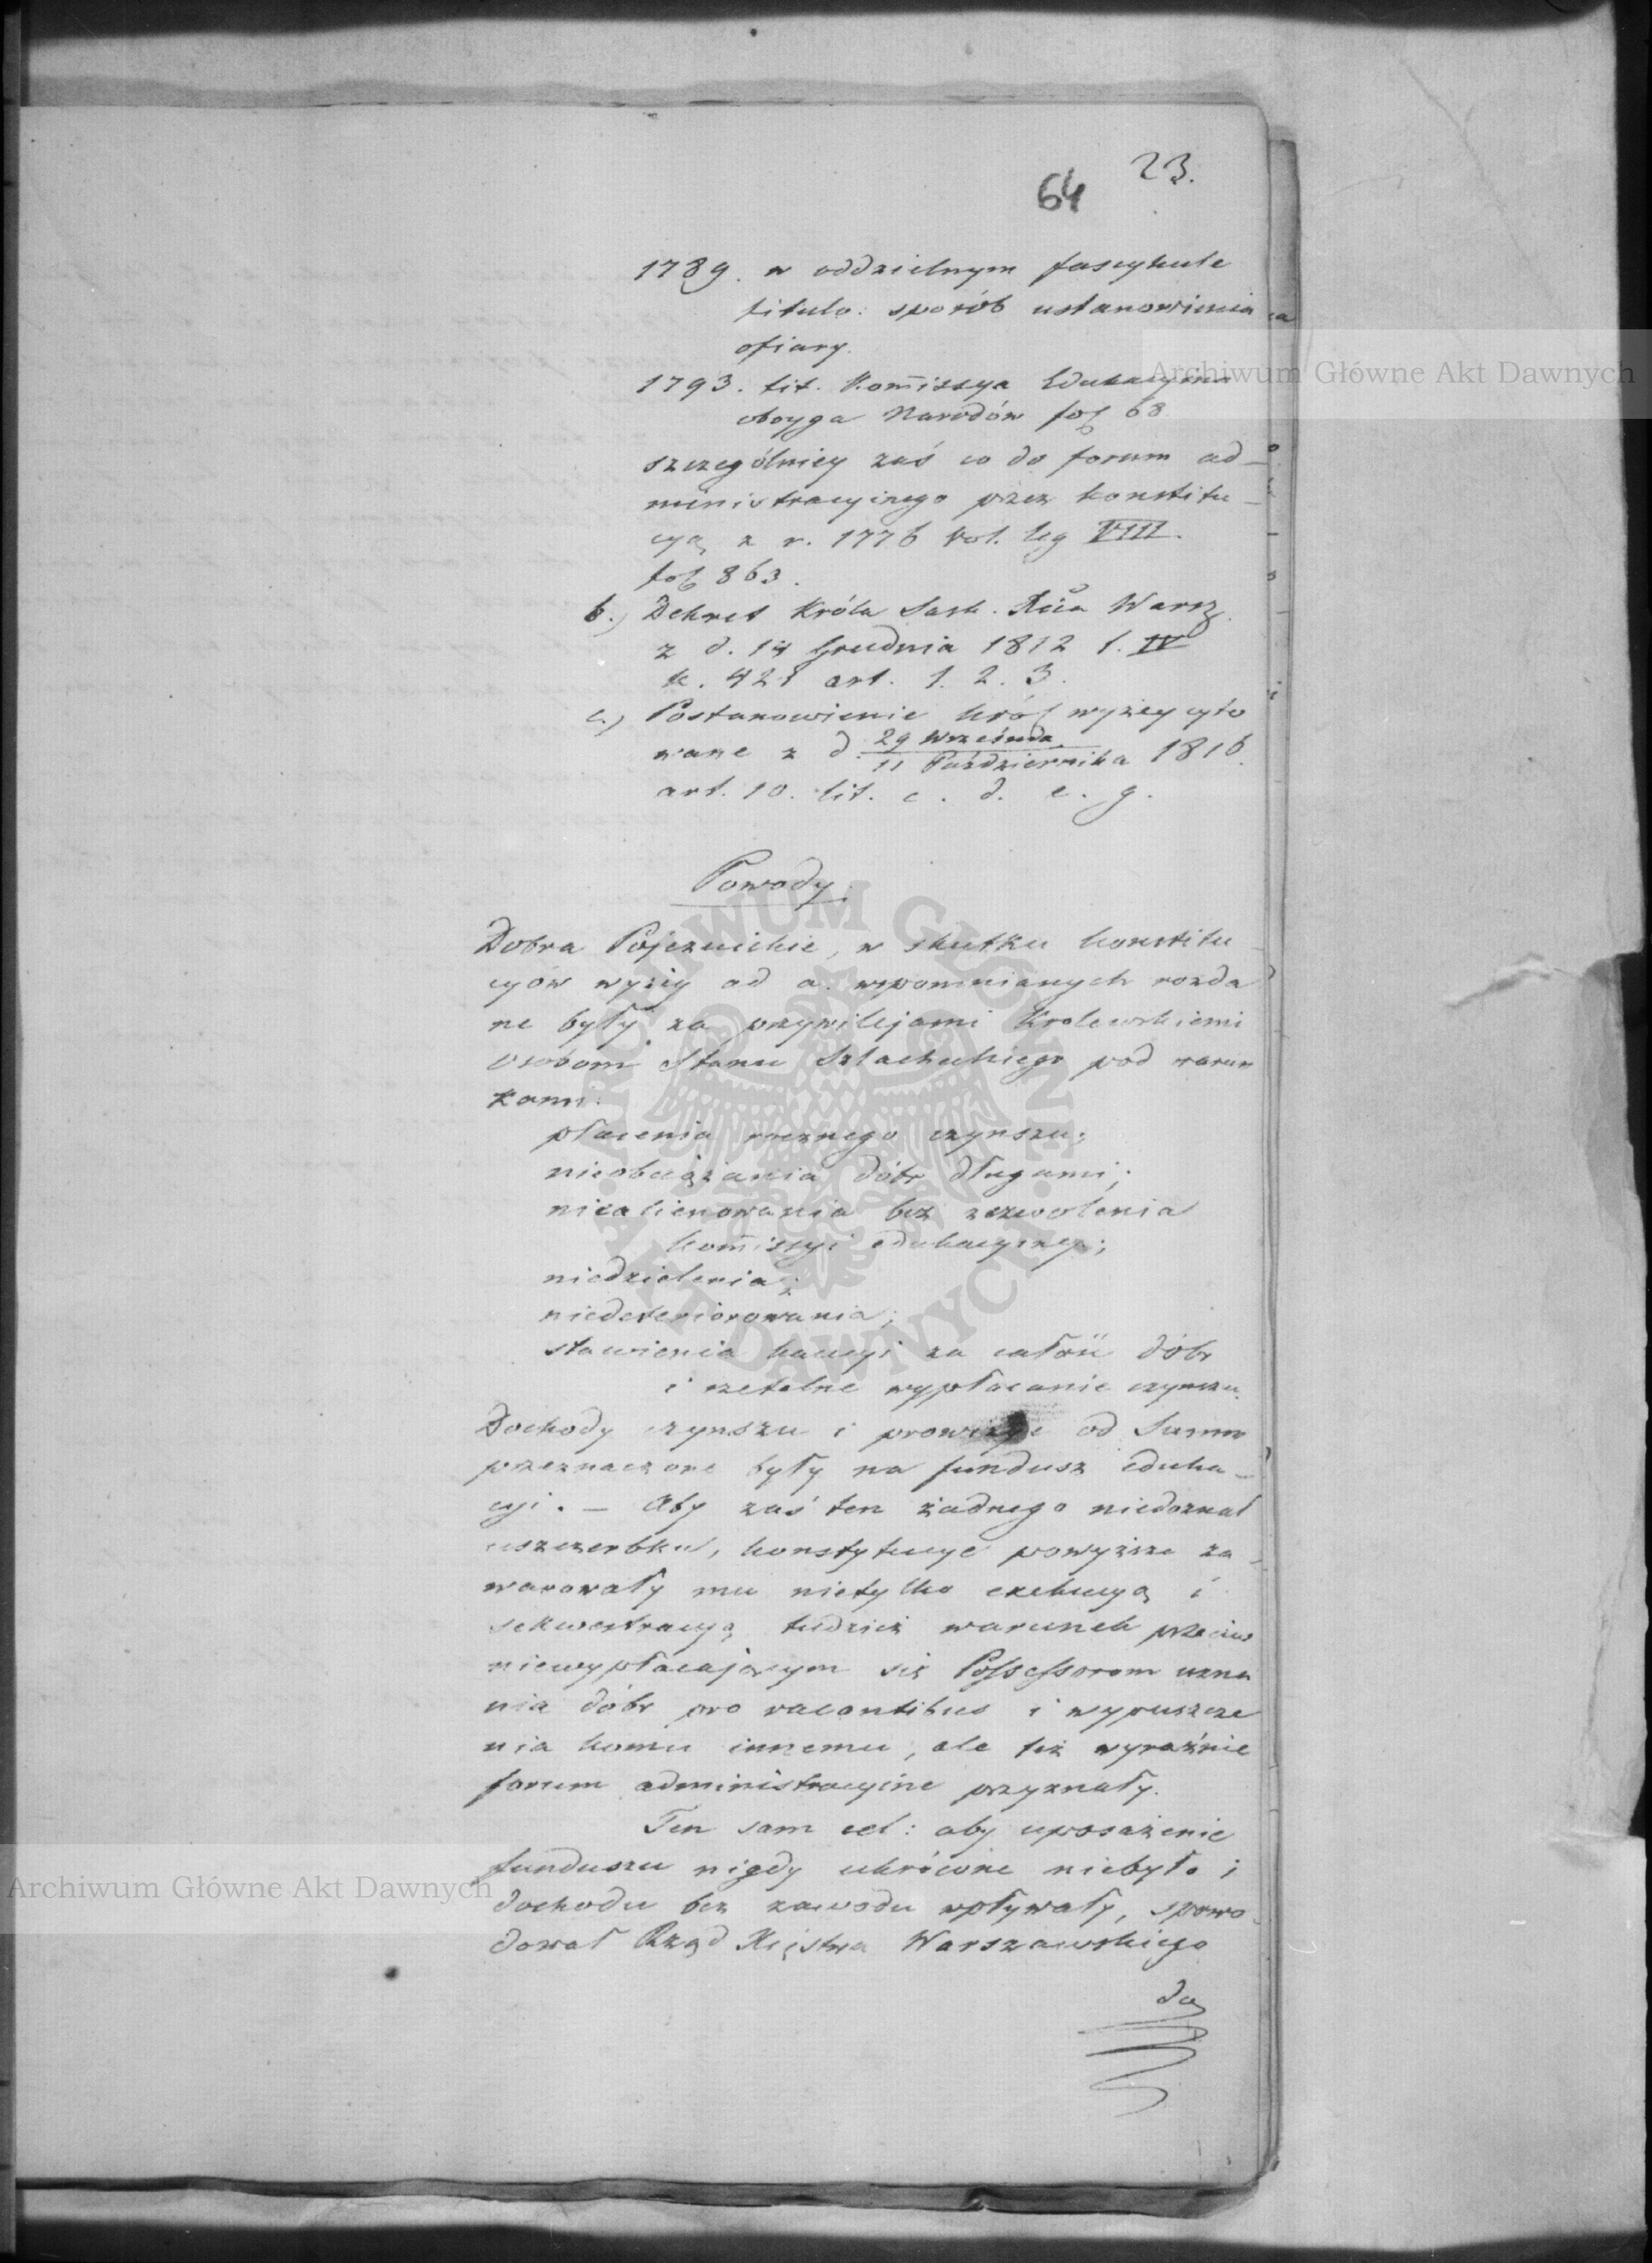 23.
64
1789. w oddzielnym fascykule
titulo: sposób ustanowienia
ofiary.
1793. tit. Kom̄issya Edukacyina
oboyga Narodów fol 68
szczególniey zaś co do forum ad-
ministracyinego przez konstitu-
cyą z r. 1776 Vol. leg VIII.
fol 863.
b.) Dekret Króla Sask. Xcia Warsz.
z d. 14 Grudnia 1812 t. IV
k. 421 art. 1. 2. 3.
c.) Postanowienie Król wyżey cyto
wane z d. 29 Września
11 Października 1816.
art. 10. lit. c. d. e. g.
Powody.
Dobra Pojezuickie, w skutku konstitu-
cyów wyżey ad a. wspomnianych rozda
ne były za przywilejami Krolewskiemi
osobom Stanu Szlacheckiego pod warun
kami:
płacenia rocznego czynszu;
nieobciążania dóbr długami;
niealienowania bez zezwolenia
Kom̄issyi edukacyiney;
niedzielenia;
niedeteriorowania;
stawienia kaucyi za całość dóbr
i rzetelne wypłacanie czynszu.
Dochody czynszu i prowizye od Summ
przeznaczone były na fundusz eduka-
cyi. — Aby zaś ten żadnego niedoznał
uszczerbku, konstytucye powyższe za-
warowały mu nietylko exekucyą i
sekwestracyą tudzież warunek przeciw
niewypłacającym się Possessorom uzna
nia dóbr pro vacantibus i wypuszcze
nia komu innemu, ale też wyraźnie
forum administracyine przyznały.
Ten sam cel: aby uposażenie
funduszu nigdy ukrócone niebyło i
dochodu bez zawodu wpływały, spowo-
dował Rząd Xięstwa Warszawskiego
do
Archiwum Główne Akt Dawnych
ARCHIWUM GŁÓWNE AKT DAWNYCH
Archiwum Główne Akt Dawnych